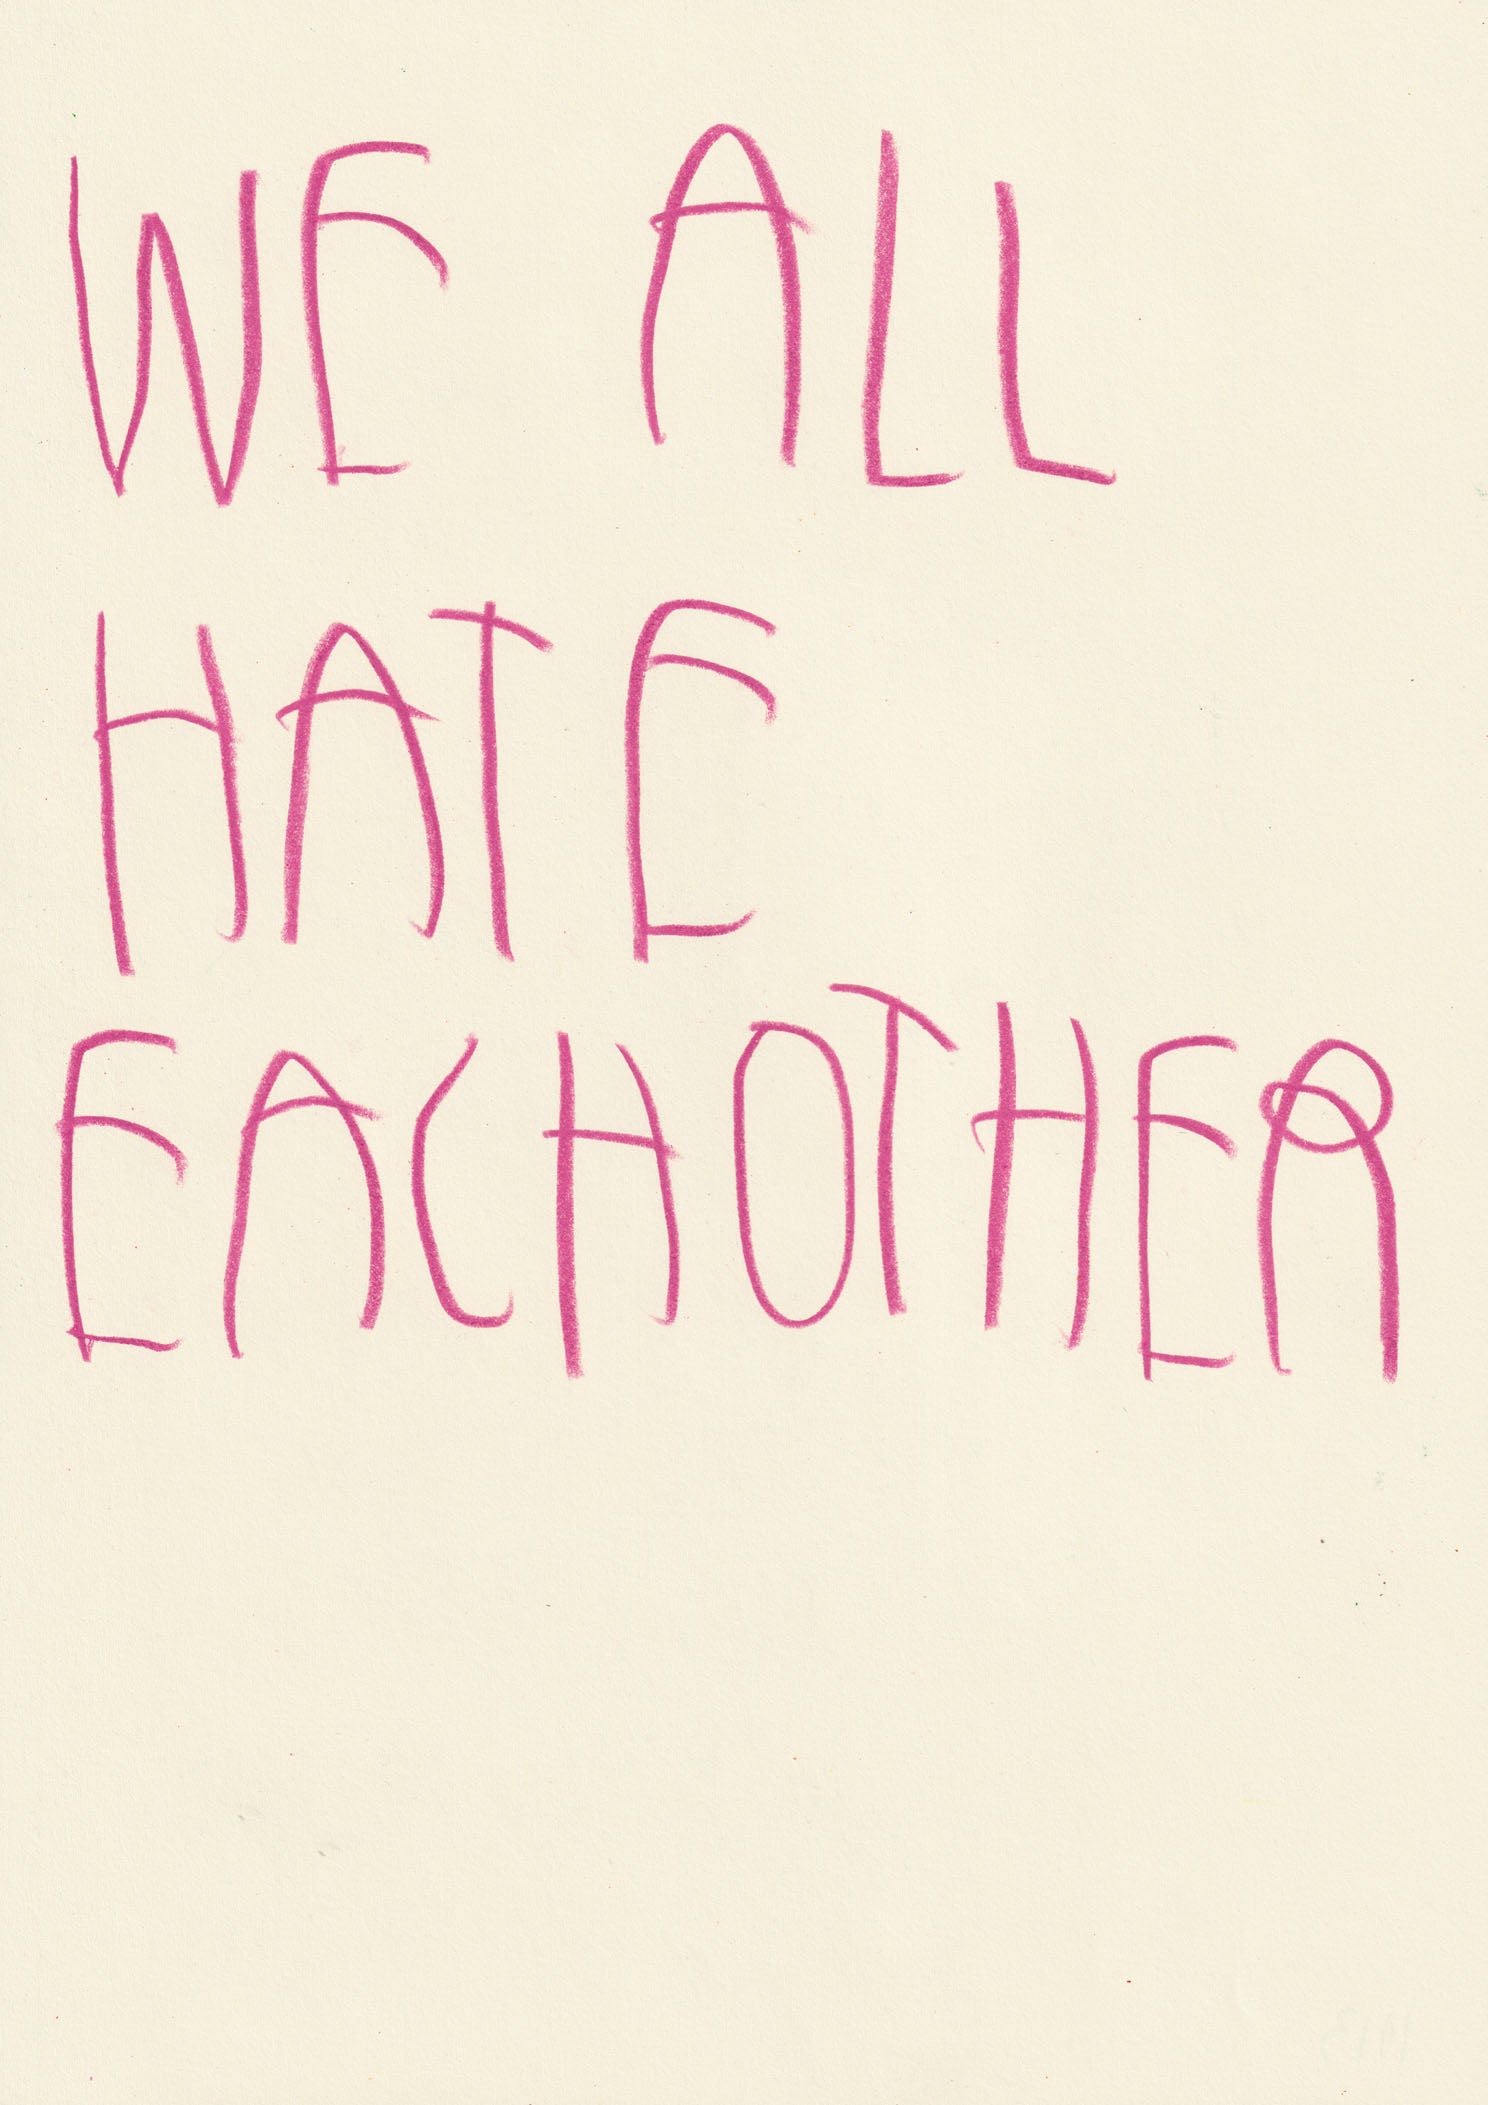 WE ALL
HATE
EACHOTHER